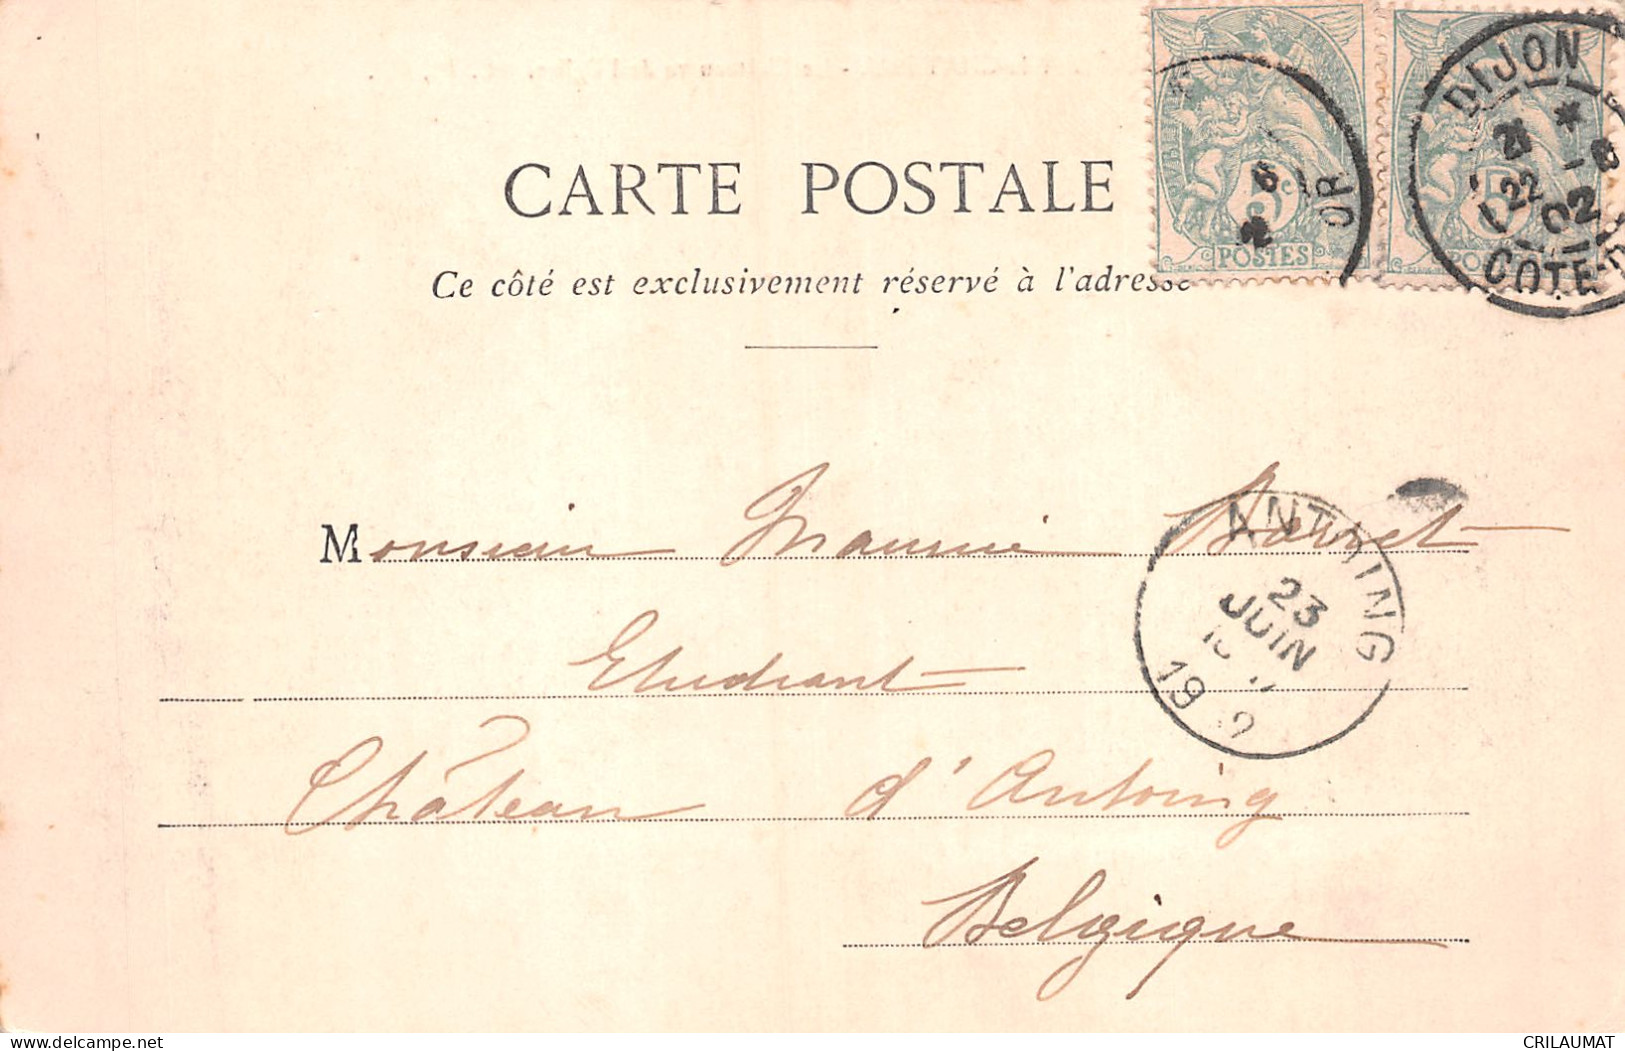 DIJON
21 *
22 -6
02
COTE-D
6
OR
5c
POSTES
CARTE POSTALE
Ce côté est exclusivement réservé à l'adresse
Monsieur Maurice
ANTOING
23
JUIN
19
Etudiant
Château d'Antoing
Belgique
delcampe.net
CRILAUMAT